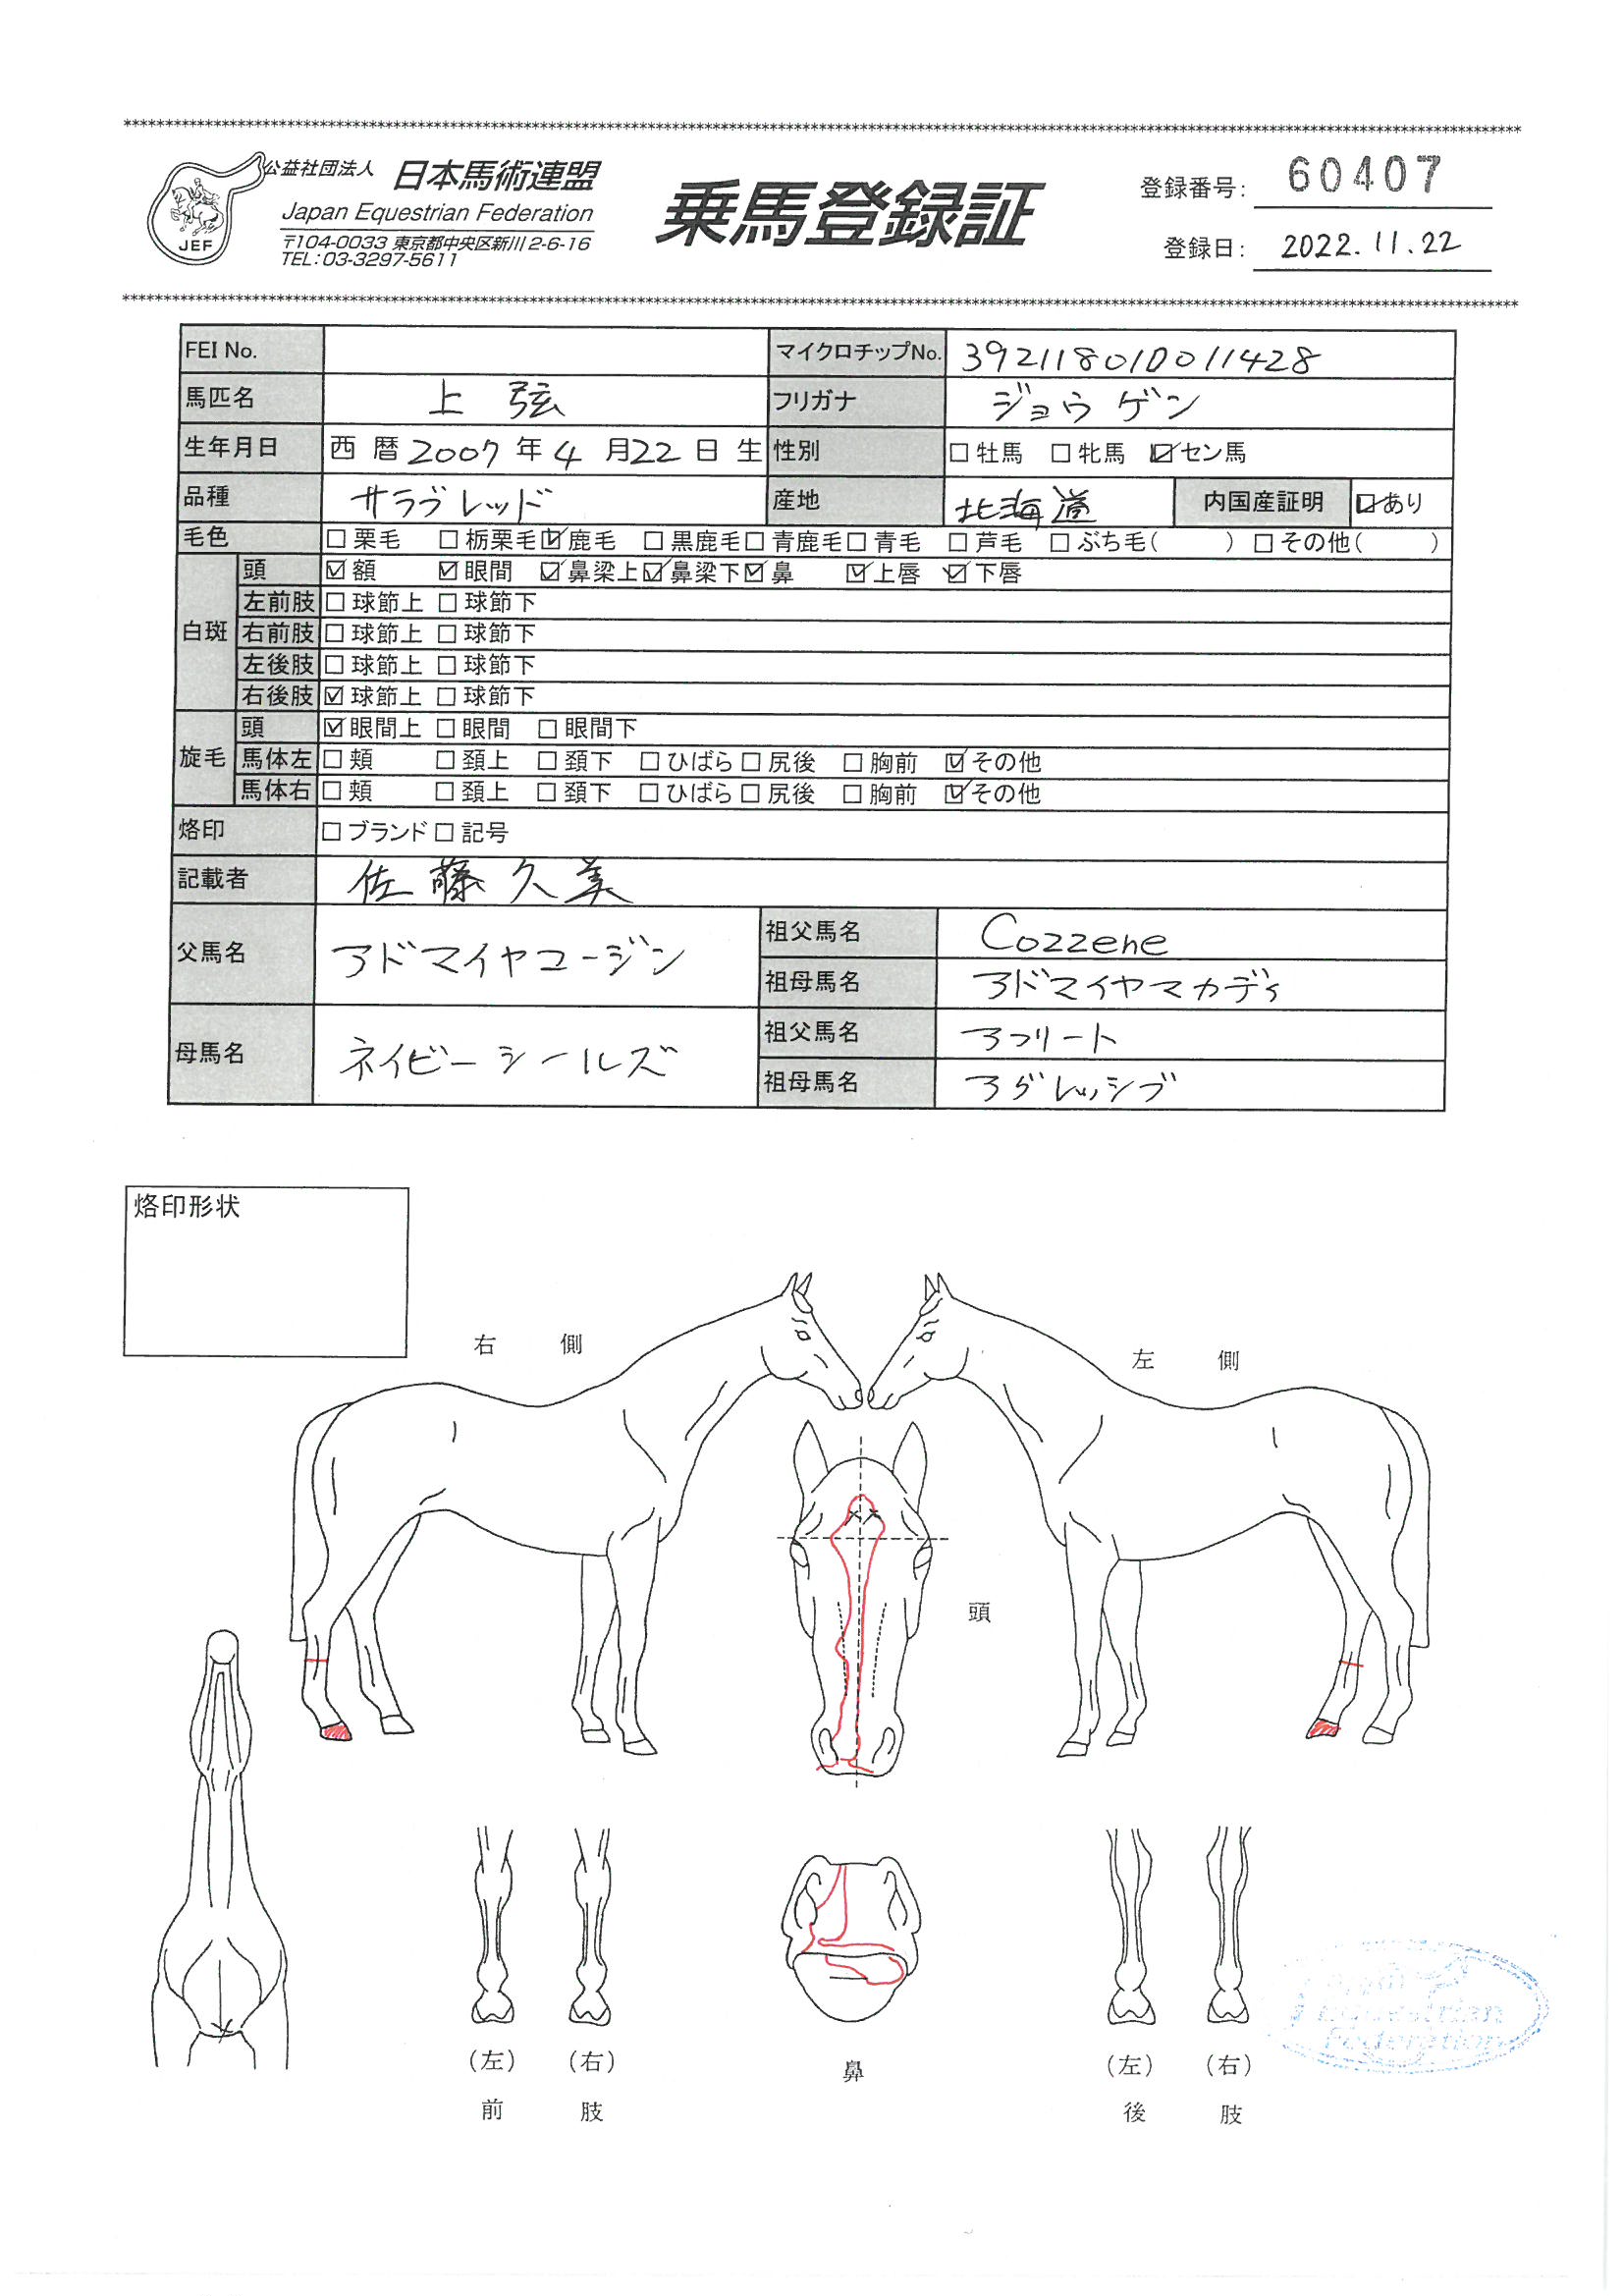 公益社団法人 日本馬術連盟
Japan Equestrian Federation
〒104-0033 東京都中央区新川2-6-16
TEL:03-3297-5611
JEF
乗馬登録証
登録番号: 60407
登録日: 2022.11.22
FEI No. マイクロチップNo. 392118010011428
馬匹名 上弦 フリガナ ジョウゲン
生年月日 西暦2007年4月22日生 性別 □牡馬 □牝馬 ☑セン馬
品種 サラブレッド 産地 北海道 内国産証明 ☑あり
毛色 □栗毛 □栃栗毛 ☑鹿毛 □黒鹿毛 □青鹿毛 □青毛 □芦毛 □ぶち毛( ) □その他( )
白斑 頭 ☑額 ☑眼間 ☑鼻梁上 ☑鼻梁下 ☑鼻 ☑上唇 ☑下唇
左前肢 □球節上 □球節下
右前肢 □球節上 □球節下
左後肢 □球節上 □球節下
右後肢 ☑球節上 □球節下
旋毛 頭 ☑眼間上 □眼間 □眼間下
馬体左 □頬 □頚上 □頚下 □ひばら □尻後 □胸前 ☑その他
馬体右 □頬 □頚上 □頚下 □ひばら □尻後 □胸前 ☑その他
烙印 □ブランド □記号
記載者 佐藤久美
父馬名 アドマイヤコージン 祖父馬名 Cozzene
祖母馬名 アドマイヤマカディ
母馬名 ネイビーシールズ 祖父馬名 アフリート
祖母馬名 アグレッシブ
烙印形状
右側
左側
頭
(左) (右)
前肢
鼻
(左) (右)
後肢
Equestrian
Federation